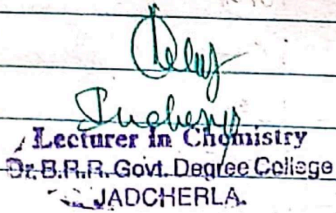 Lecturer in Chemistry
Dr. B.R.R. Govt. Degree College
JADCHERLA.